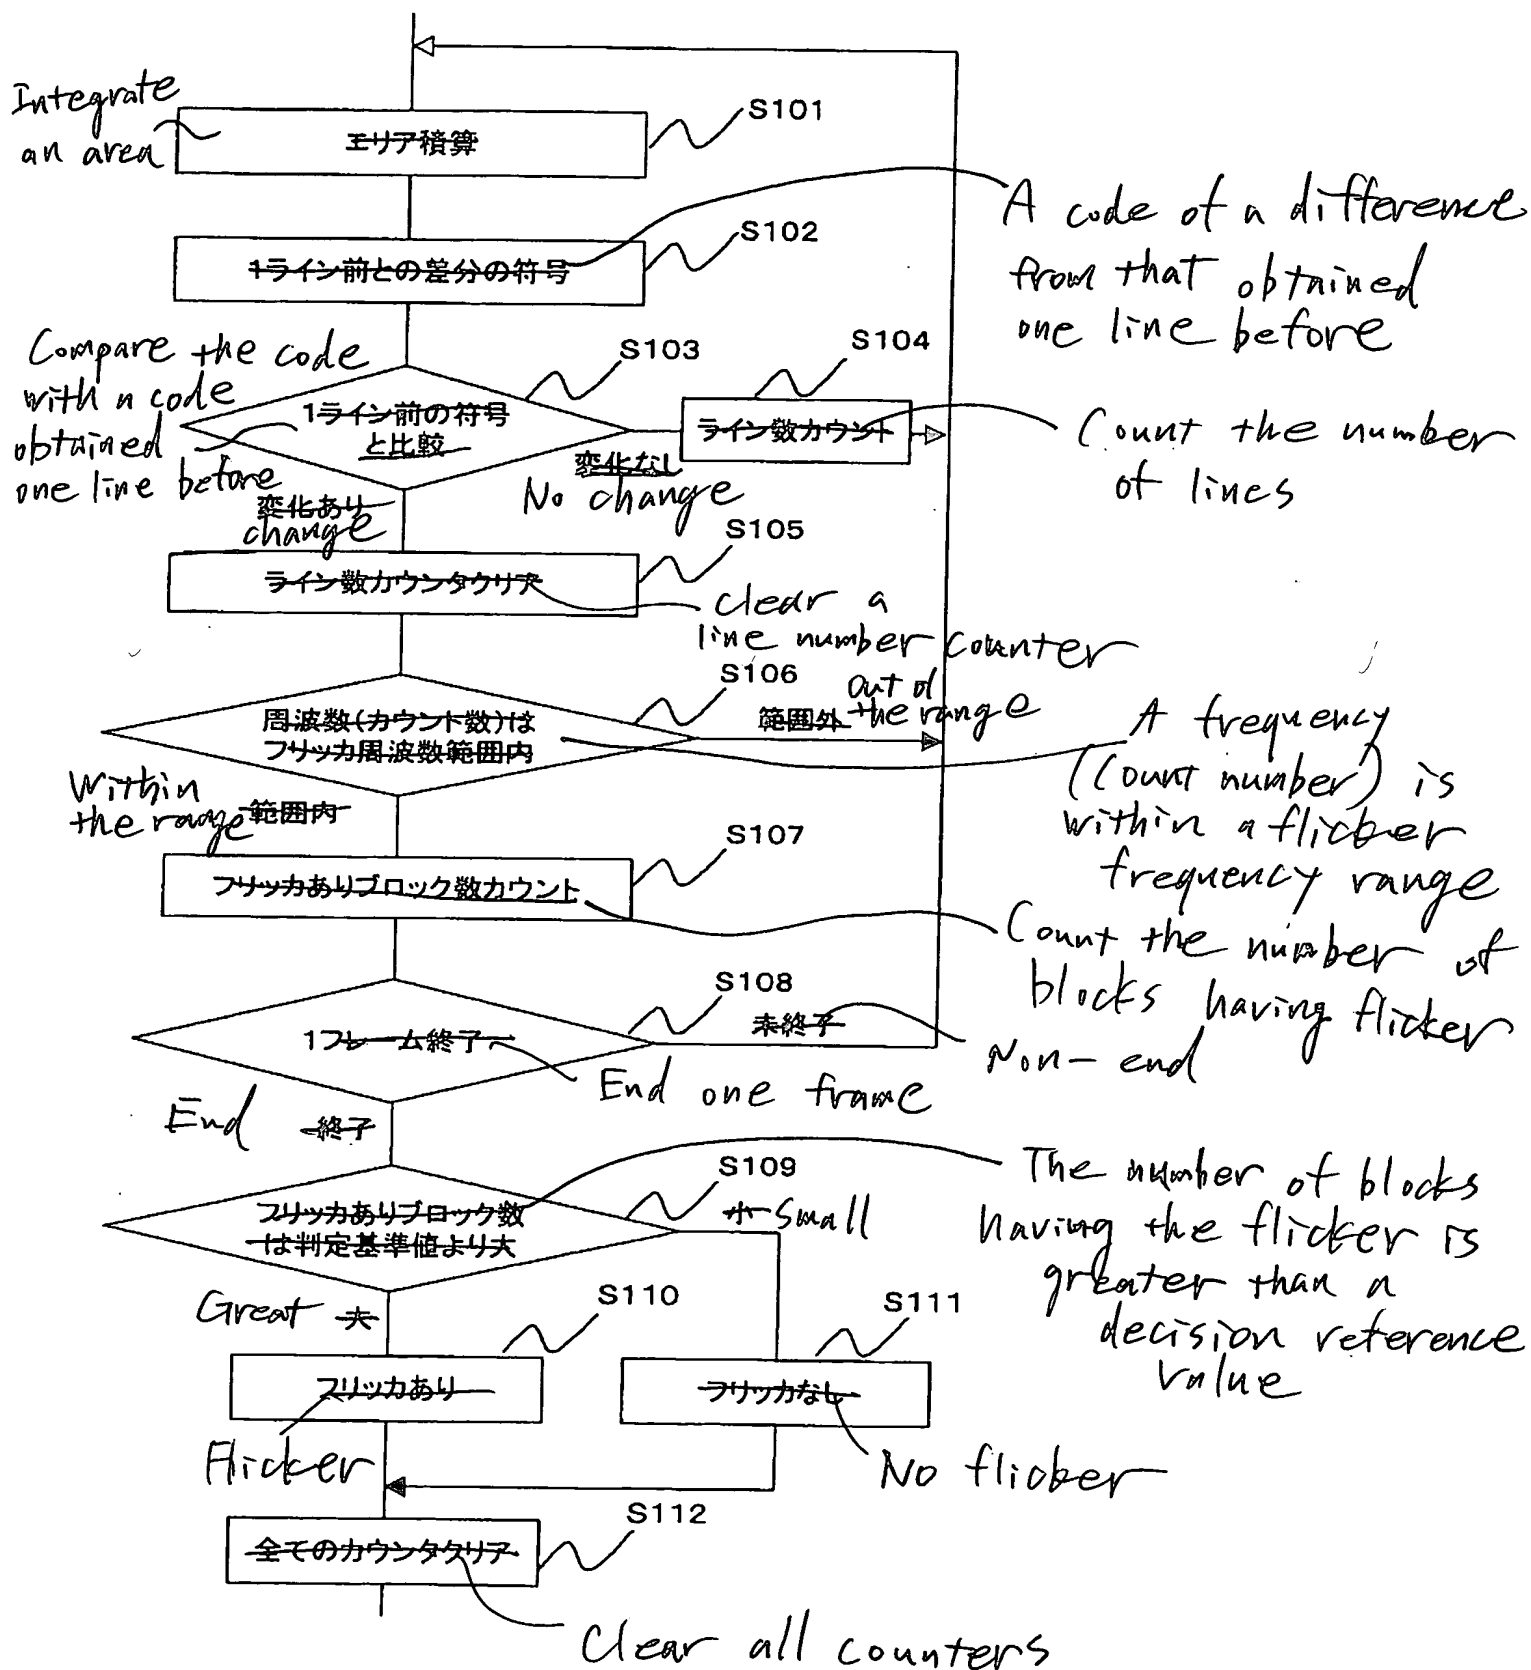 Integrate
an area
エリア積算
S101
1ライン前との差分の符号
S102
A code of a difference
from that obtained
one line before
Compare the code
with a code
obtained
one line before
1ライン前の符号
と比較
S103
S104
ライン数カウント
Count the number
of lines
変化なし
No change
変化あり
change
S105
ライン数カウンタクリア
clear a
line number counter
S106
周波数(カウント数)は
フリッカ周波数範囲内
範囲外
out of
the range
A frequency
(Count number) is
within a flicker
frequency range
Within
the range
範囲内
S107
フリッカありブロック数カウント
Count the number of
blocks having flicker
S108
1フレーム終了
未終了
Non-end
End one frame
End
終了
S109
フリッカありブロック数
は判定基準値より大
小 Small
The number of blocks
having the flicker is
greater than a
decision reference
value
Great 大
S110
フリッカあり
Flicker
S111
フリッカなし
No flicker
S112
全てのカウンタクリア
Clear all counters